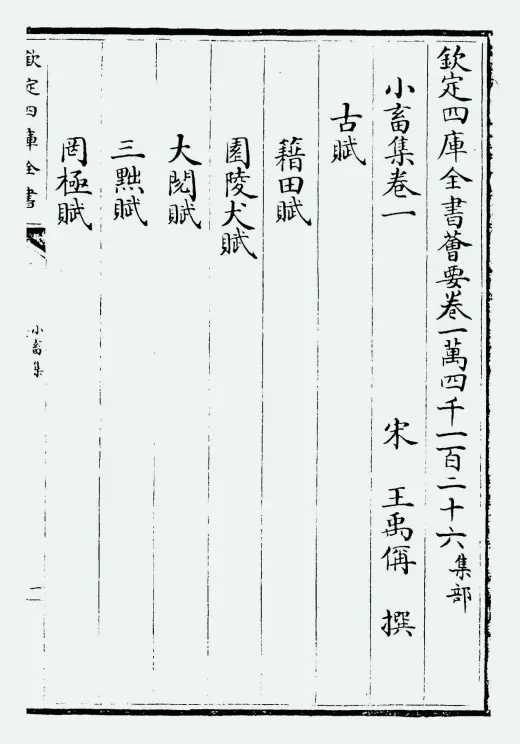 欽定四庫全書薈要卷一萬四千一百二十六集部
小畜集卷一　宋　王禹偁　撰
古賦
籍田賦
園陵犬賦
大閱賦
三黜賦
罔極賦
欽定四庫全書
小畜集
一